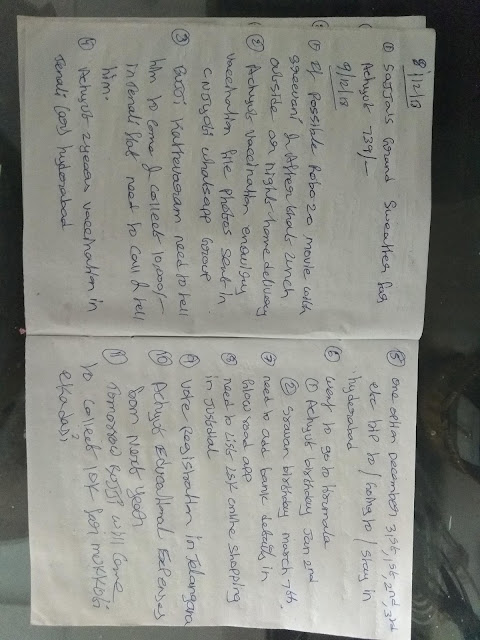 8/12/18
① Sajja's Grand Sweatter for
Achyut 739/-
9/12/18
① If possible Robo 2.0 movie with
Sreevani & After that Lunch
outside or night-home delivery
② Achyut vaccination enquiry
vaccination file photos sent in
whatsapp Group
③ Bujji Kattevagram need to tell
him to come & collect 10,000/-
in Tenali flat need to call & tell
him.
④ Achyut 2 years vaccination in
Tenali (or) hyderabad
⑤ one option December 31st, 1st, 2nd, 3rd
etc trip to / Going to / stay in
hyderabad
⑥ want to go to tirumala
① Achyut birthday Jan 2nd
② Sravan birthday March 7th
⑦ need to add bank details in
blow road app
⑧ need to list LSK online shopping
in Justdial
⑨ Vote Registration in Telangana
⑩ Achyut Educational Expenses
from Next year
⑪ Tomorrow Bujji will come
to collect 10K for mukkoti
ekadasi